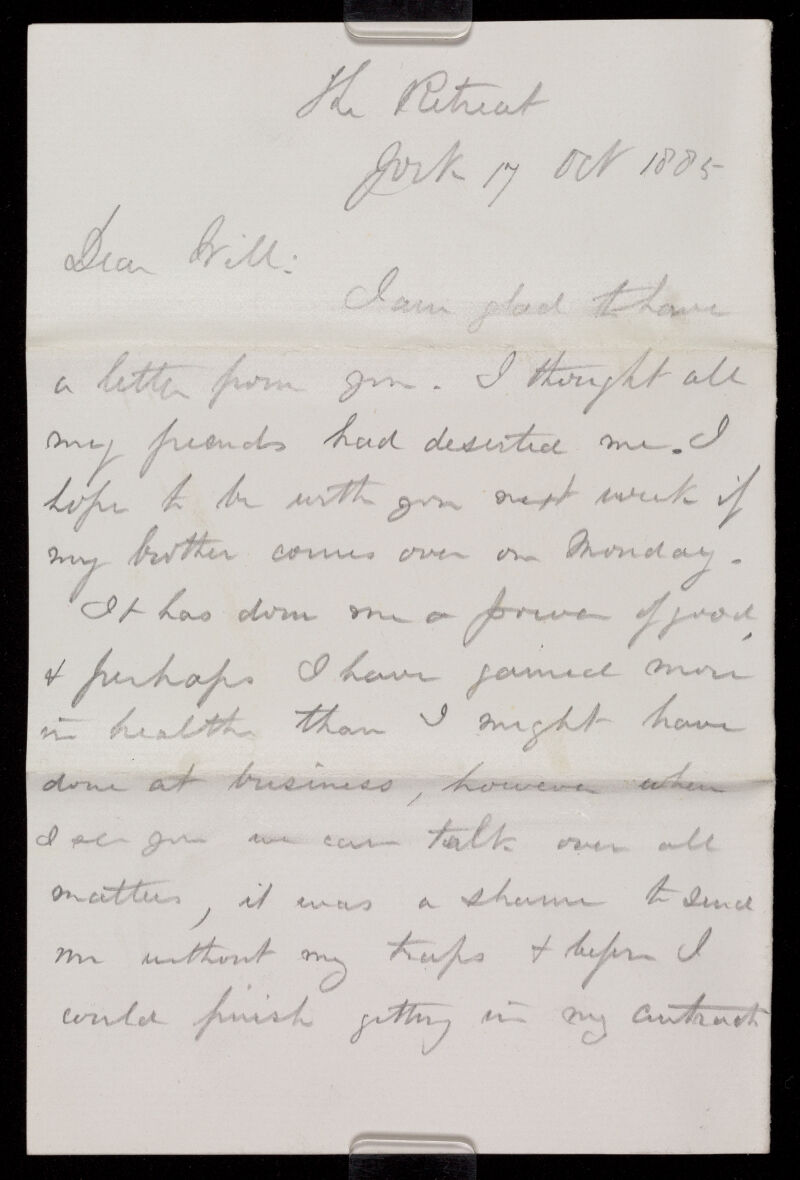 The Retreat
York 17 Oct 1885
Dear Will:
I am glad to have
a letter from you. I thought all
my friends had deserted me. I
hope to be with you next week if
my brother comes over on Monday.
It has done me a power of good,
& perhaps I have gained more
in health than I might have
done at business, however when
I see you we can talk over all
matters, it was a shame to send
me without my traps & before I
could finish getting in my contract